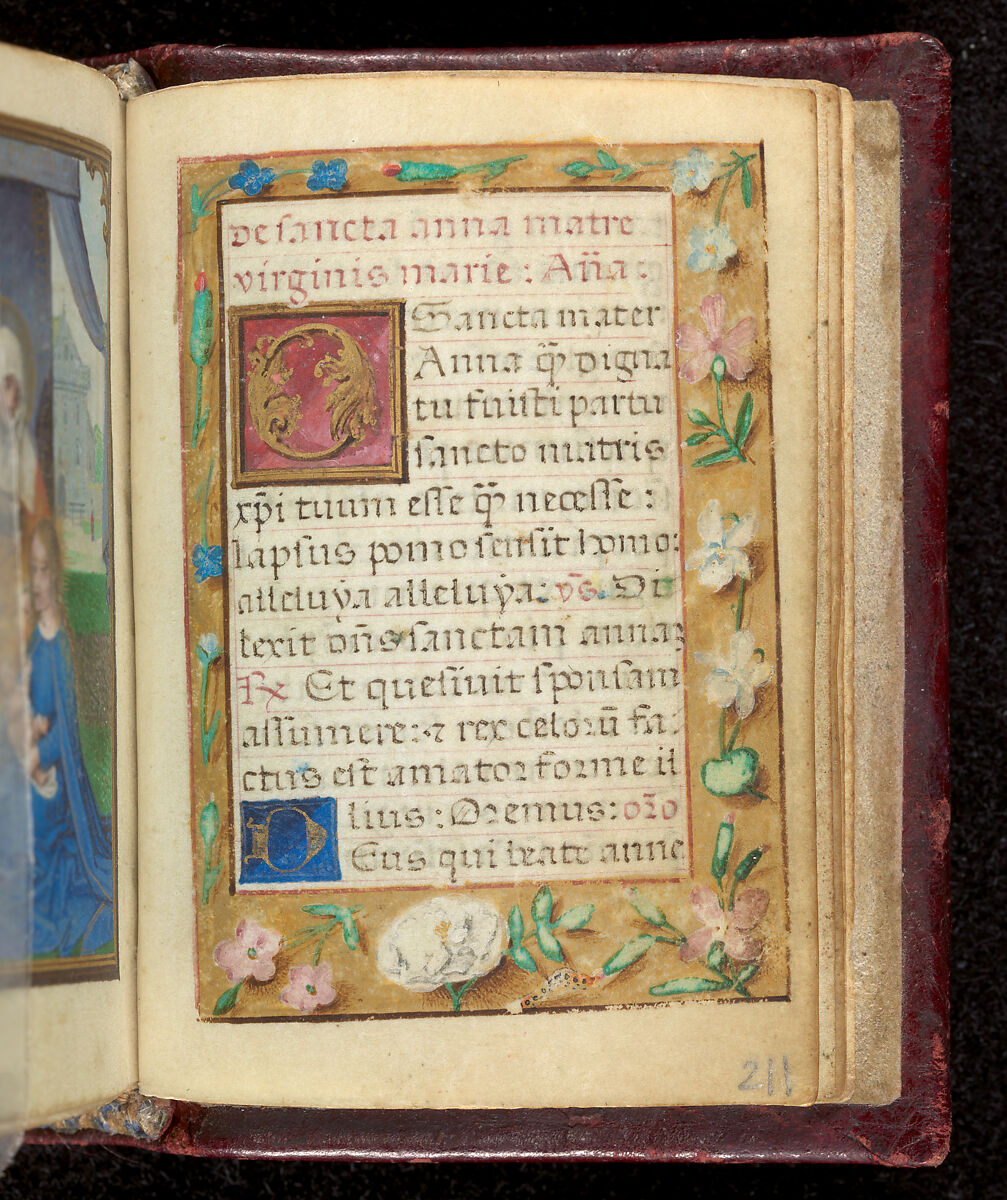 De sancta anna matre
virginis marie : An̄a :
O Sancta mater
Anna q̄ꝫ digna
tu fuisti partu
sancto matris
xp̄i tuum esse q̄ꝫ necesse :
lapsus pomo sensit homo:
alleluya alleluya: v̄s. Di
lexit dn̄s sanctam annaꝫ
℟ Et quesiuit sponsam
assumere: ⁊ rex celorū fa:
ctus est amator forme il
lius : Oremus: or̄o
Deus qui beate anne
211